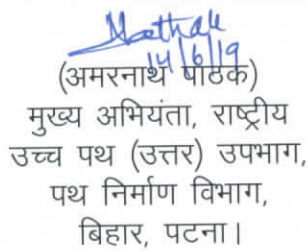 Pathak
14/6/19
(अमरनाथ पाठक)
मुख्य अभियंता, राष्ट्रीय
उच्च पथ (उत्तर) उपभाग,
पथ निर्माण विभाग,
बिहार, पटना।